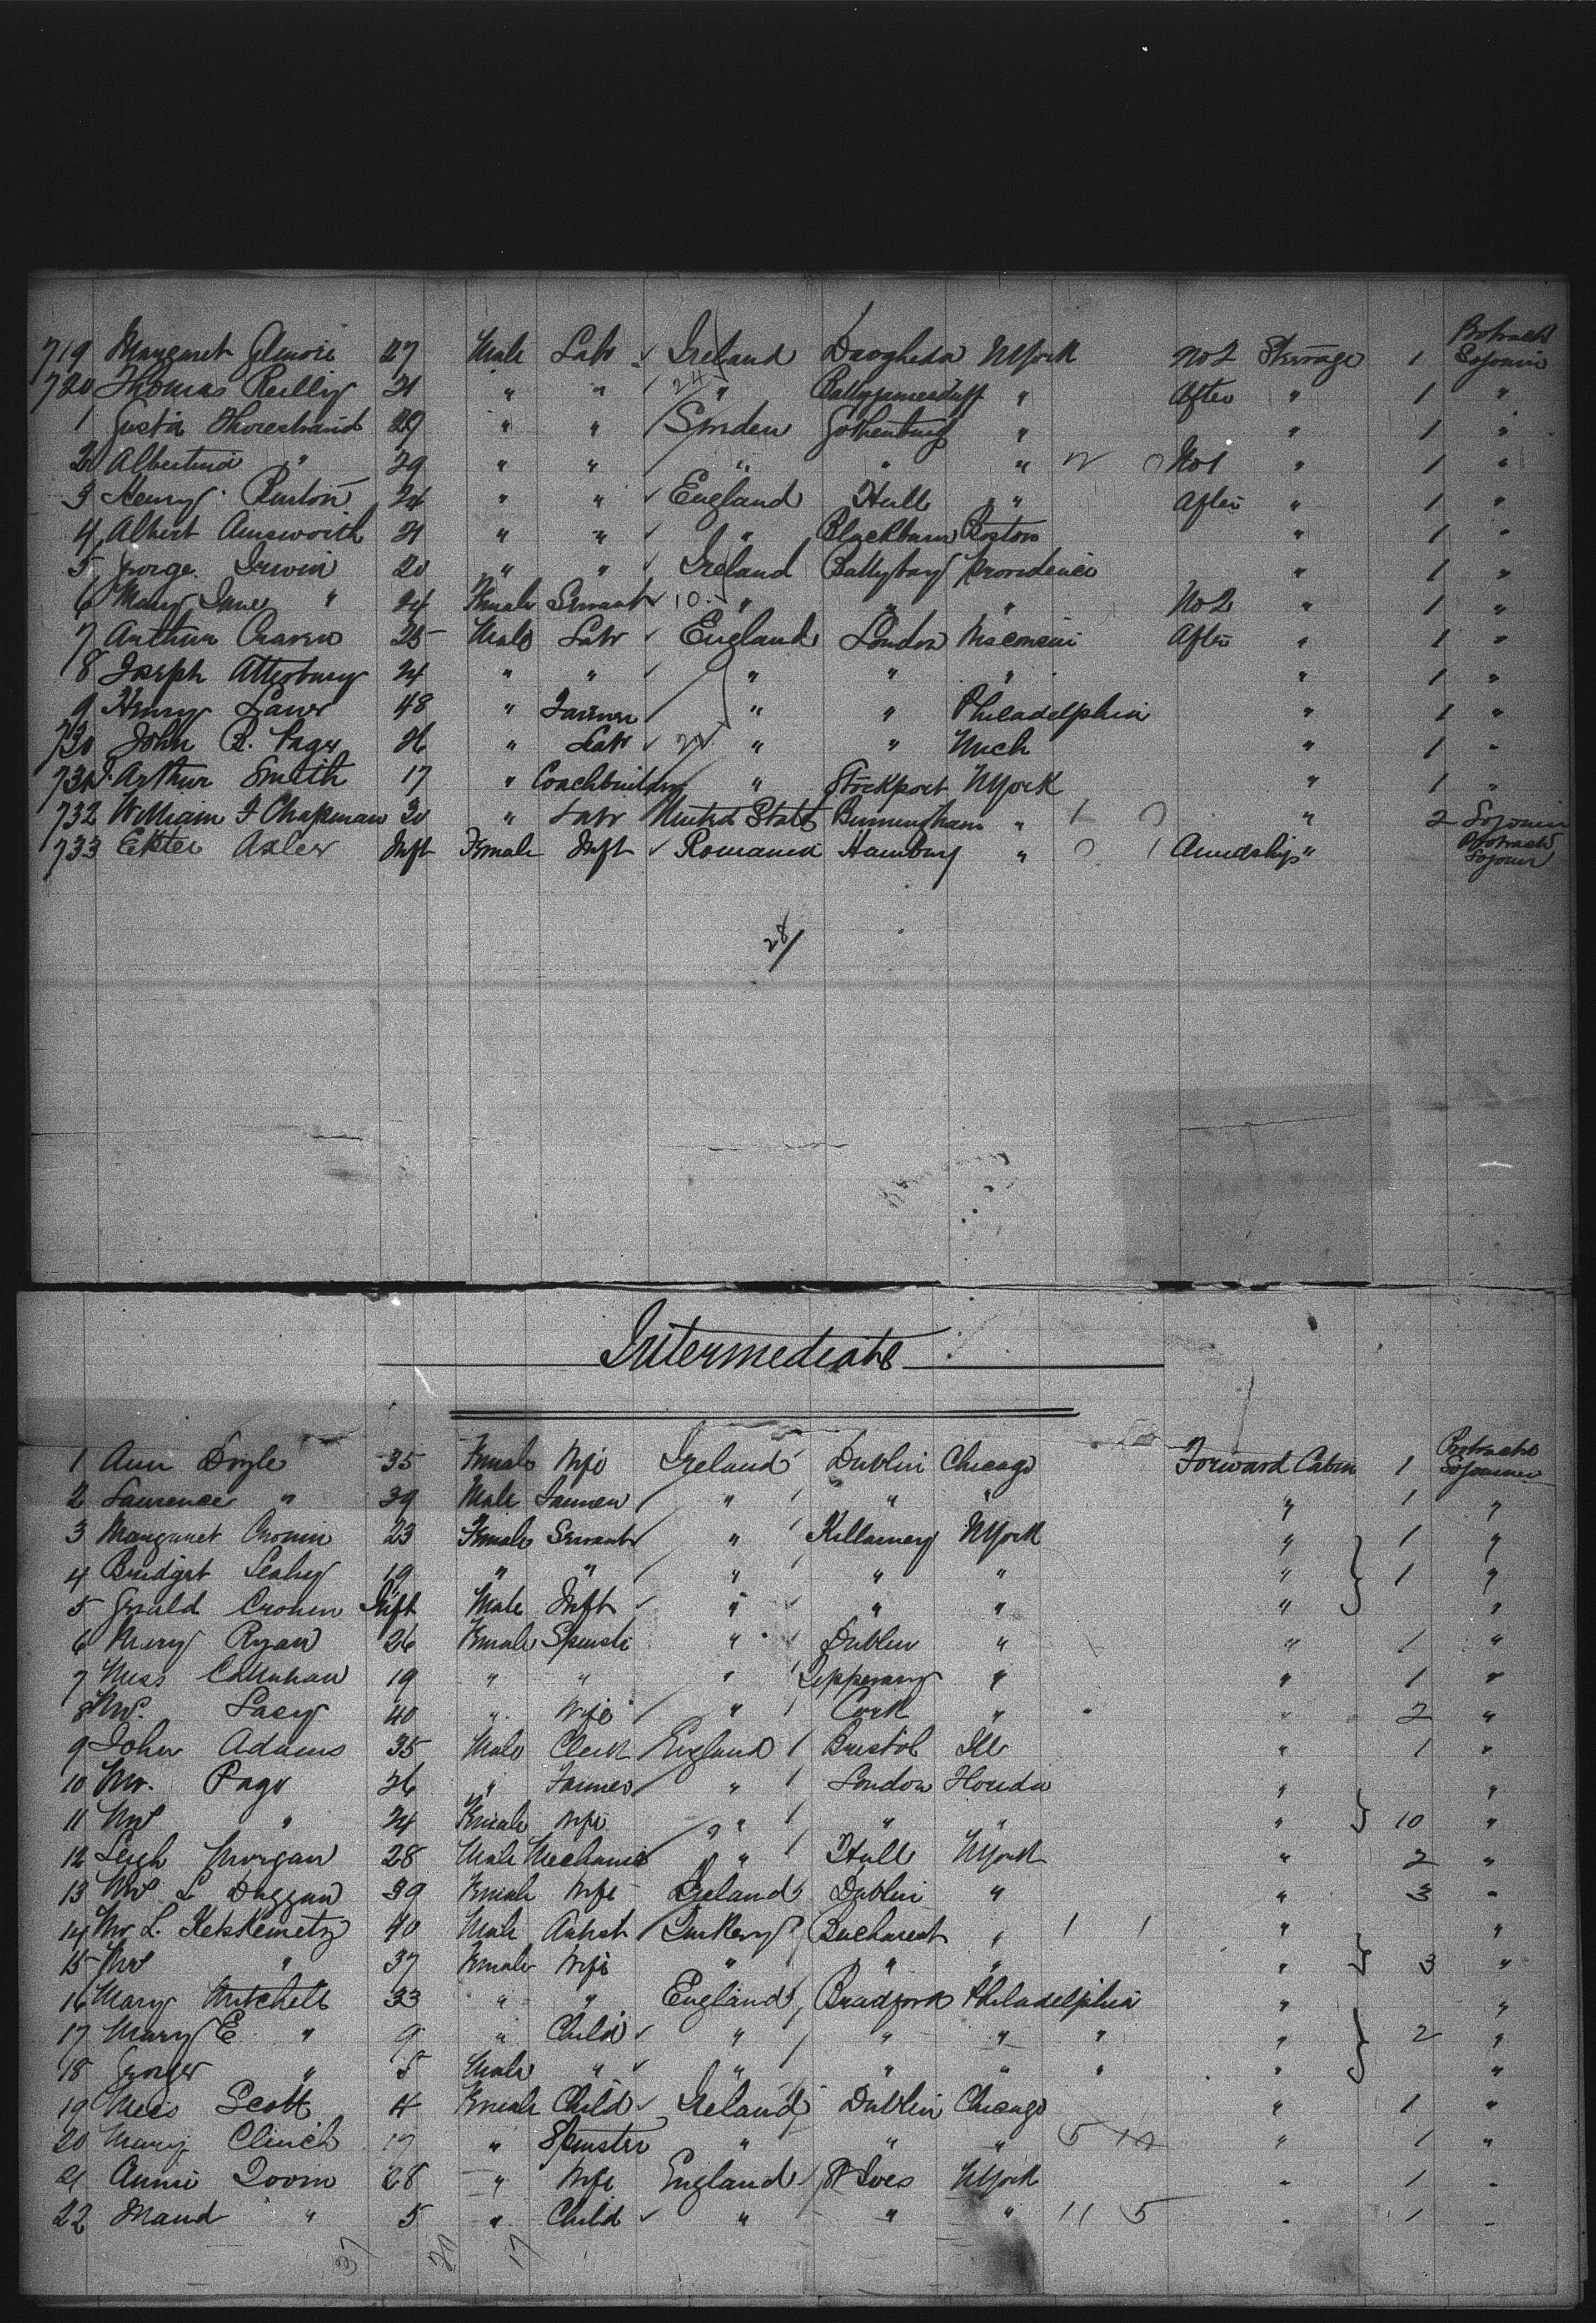 719 Margaret Gilmore 27 Male Labr Ireland Drogheda NYork No 2 Steerage 1 Protracted Sojourn
720 Thomas Reilly 21 " " 24 " Ballyjamesduff " After " 1 "
1 Gusta Thorestraind 29 " " Sweden Gothenburg " " 1 "
2 Albertina " 29 " " " " " No 1 " 1 "
3 Henry Burton 24 " " England Hull " After " 1 "
4 Albert Ainsworth 21 " " " Blackburn Boston " 1 "
5 George Irwin 20 " " Ireland Ballybay Providence " 1 "
6 Mary Jane " 24 Female Servant 10 " " " No 2 " 1 "
7 Arthur Craven 25 Male Labr England London Wisconsin After " 1 "
8 Joseph Atterbury 24 " " " " " " 1 "
9 Henry 48 " Farmer " " Philadelphia " 1 "
730 John R. Page 26 " Labr " " Mich " 1 "
731 J. Arthur Smith 17 " Coachbuilder " Stockport NYork " 1 "
732 William F Chapman 30 " Labr United States Birmingham " 1 0 " 2 Sojourn
733 Axler Inft Female Inft Romania Hamburg " 0 1 Amidship " Protracted Sojourn
28/
Intermediate
1 Ann Doyle 35 Female Wife Ireland Dublin Chicago Forward Cabin 1 Protracted Sojourn
2 Laurence " 39 Male Farmer " " " " 1 "
3 Margaret Cronin 23 Female Servant " Killarney NYork " 1 "
4 Bridget Leahy 19 " " " " " " 1 "
5 Gerald Cronin Inft Male Inft " " " " "
6 Mary Ryan 26 Female Spinstr " Dublin " " 1 "
7 Miss Callanan 19 " " " Tipperary " " 1 "
8 Mrs. Lacy 40 " Wife " Cork " " 2 "
9 John Adams 35 Male Clerk England Bristol Ill " 1 "
10 Mr. Page 26 " Farmer " London Florida " "
11 Mrs " 24 Female Wife " " " " 10 "
12 Leigh Morgan 28 Male Mechanic " Hull NYork " 2 "
13 Mrs L Duggan 39 Female Wife Ireland Dublin " " 3 "
14 Mr L. Kekkemetz 40 Male Artist Turkey Bucharest " 1 1 " "
15 Mrs " 37 Female Wife " " " " 3 "
16 Mary Mitchell 33 " " England Bradford Philadelphia " "
17 Mary E " 9 " Child " " " " " 2 "
18 George " 5 Male " " " " " " "
19 Miss Scott 11 Female Child Ireland Dublin Chicago " 1 "
20 Mary Clinch 17 " Spinster " " " 5 12 " 1 "
21 Annie 28 " Wife England St Ives NYork " 1 "
22 Maud " 5 " Child " " " 11 5 " 1 "
37 20 17